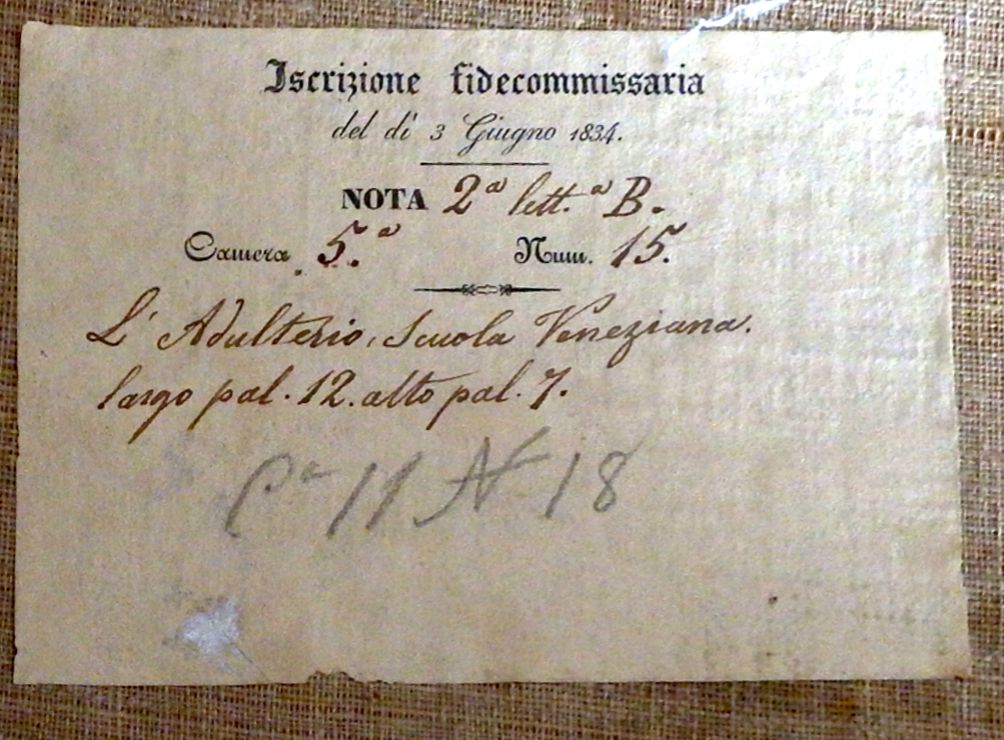 Iscrizione fidecommissaria
del dì 3 Giugno 1834.
NOTA 2ª lett.ª B.
Camera 5.ª Num. 15.
L' Adulterio, Scuola Veneziana.
largo pal. 12. alto pal. 7.
Cª 11 N 18